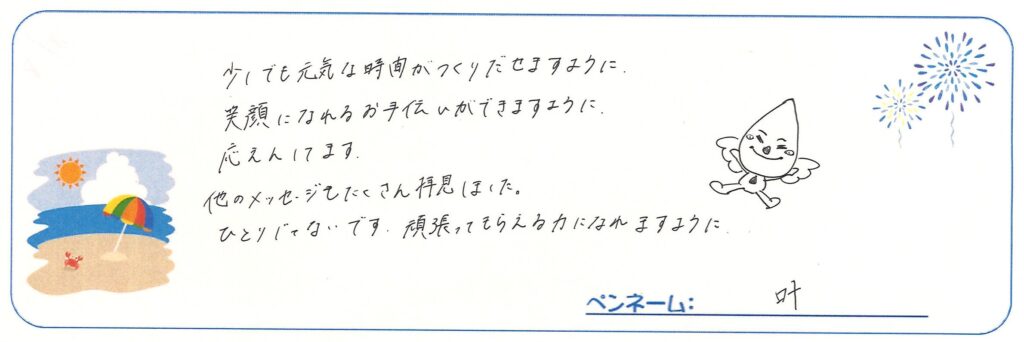 少しでも元気な時間がつくりだせますように.
笑顔になれるお手伝いができますように.
応えんしてます.
他のメッセージもたくさん拝見しました。
ひとりじゃないです. 頑張ってもらえる力になれますように.
ペンネーム: 叶